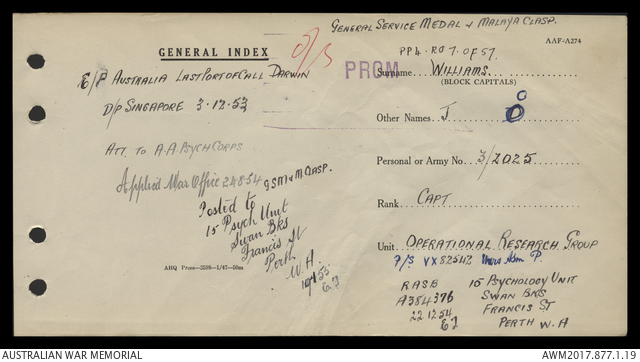 GENERAL SERVICE MEDAL & MALAYA CLASP.
PP4. RO7. OF 57.
AAF-A274
GENERAL INDEX
PROM
Surname WILLIAMS.
(BLOCK CAPITALS)
E/P AUSTRALIA LAST PORT OF CALL DARWIN
D/P SINGAPORE 3.12.53
Other Names J
ATT. TO A.A. PSYCH CORPS
Personal or Army No. 3/2025
Applied War Office 24854 GSM & M CLASP.
Rank CAPT
Posted to
15 Psych Unit
Swan Bks
Francis St
Perth
W.A.
Unit OPERATIONAL RESEARCH GROUP
P/S VX82542
RASB
A384376
22 12 54
15 PSYCHOLOGY UNIT
SWAN BKS
FRANCIS ST
PERTH W.A
AHQ Press—3599—1/47—50m
AUSTRALIAN WAR MEMORIAL
AWM2017.877.1.19